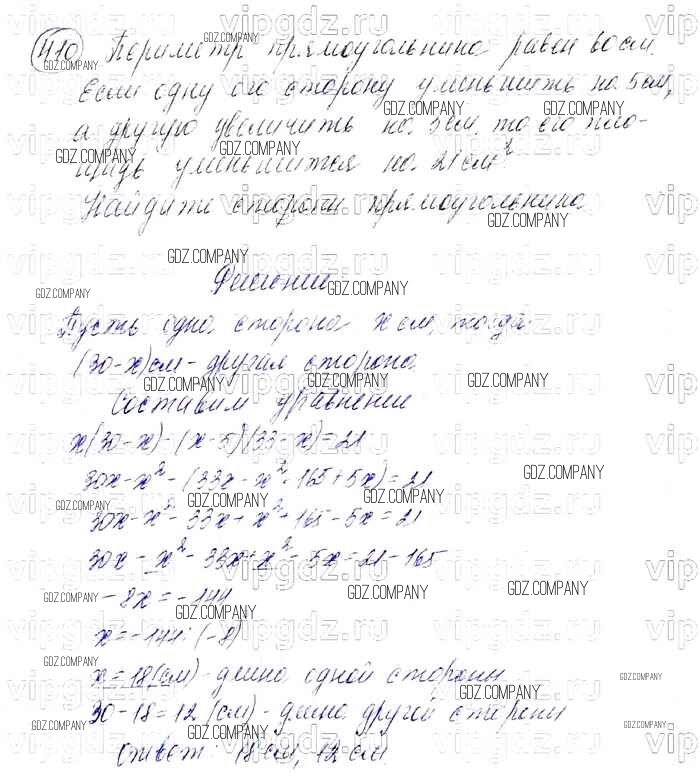 410 Периметр прямоугольника равен 60 см.
Если одну его сторону уменьшить на 5 см,
а другую увеличить на 3 см, то его пло-
щадь уменьшится на 21 см²
Найдите стороны прямоугольника.
Решение
Пусть одна сторона x см, тогда
(30-x) см - другая сторона.
Составим уравнение
x(30-x)-(x-5)(33-x)=21
30x-x²-(33x-x²-165+5x)=21
30x-x²-33x+x²+165-5x=21
30x-x²-33x+x²-5x=21-165
-8x=-144
x=-144:(-8)
x=18(см)-длина одной стороны
30-18=12 (см)-длина другой стороны
Ответ: 18 см, 12 см
GDZ.COMPANY
vipgdz.ru